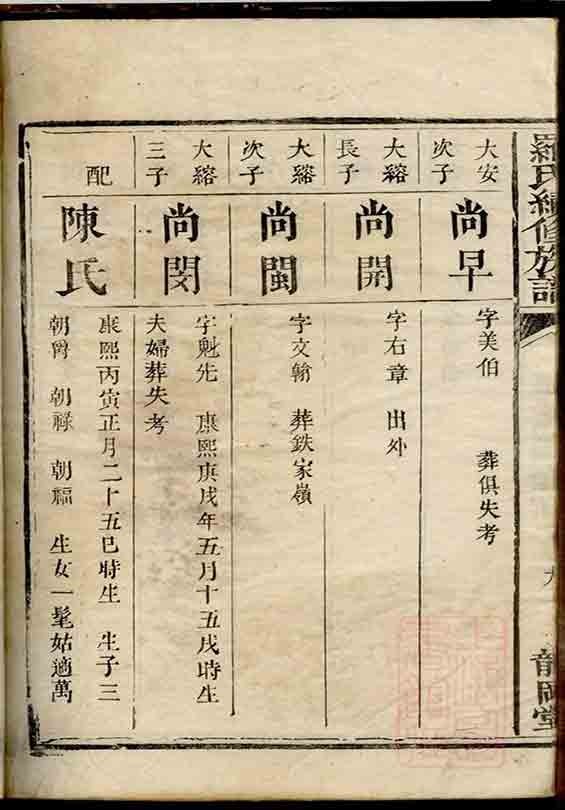 羅氏續修族譜
大安
次子
尚早
字美伯 葬俱失考
大縚
長子
尚開
字右章 出外
大縚
次子
尚閩
字文翰 葬鉄家嶺
大縚
三子
尚閔
字魁先 康熙庚戌年五月十五戌時生
夫婦葬失考
配
陳氏
康熙丙寅正月二十五巳時生 生子三
朝爵 朝祿 朝福 生女一髦姑適萬